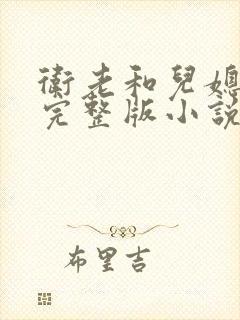 衛老和兒媳
完整版小說
布里吉